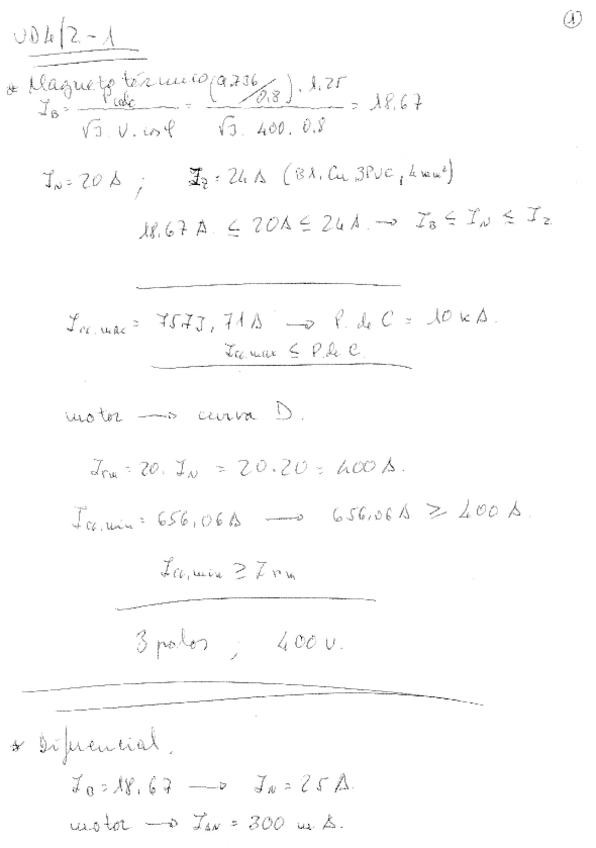 1
UD4/2-1
* Magnetotérmico
I_B = Pcalc / √3 . V . cosφ = (9.736/0.8) . 1.25 / √3 . 400 . 0.8 = 18.67
I_N = 20 A ; I_Z = 24 A (B1, Cu 3PVC, 4 mm²)
18.67 A ≤ 20 A ≤ 24 A → I_B ≤ I_N ≤ I_Z
I_cc.max = 7573,71 A → P. de C = 10 kA.
I_cc.max ≤ P. de C.
motor → curva D.
I_rm = 20. I_N = 20.20 = 400 A.
I_cc.min = 656,06 A → 656,06 A ≥ 400 A.
I_cc.min ≥ I_rm
3 polos ; 400 V.
* Diferencial.
I_B = 18.67 → I_N = 25 A.
motor → I_ΔN = 300 mA.